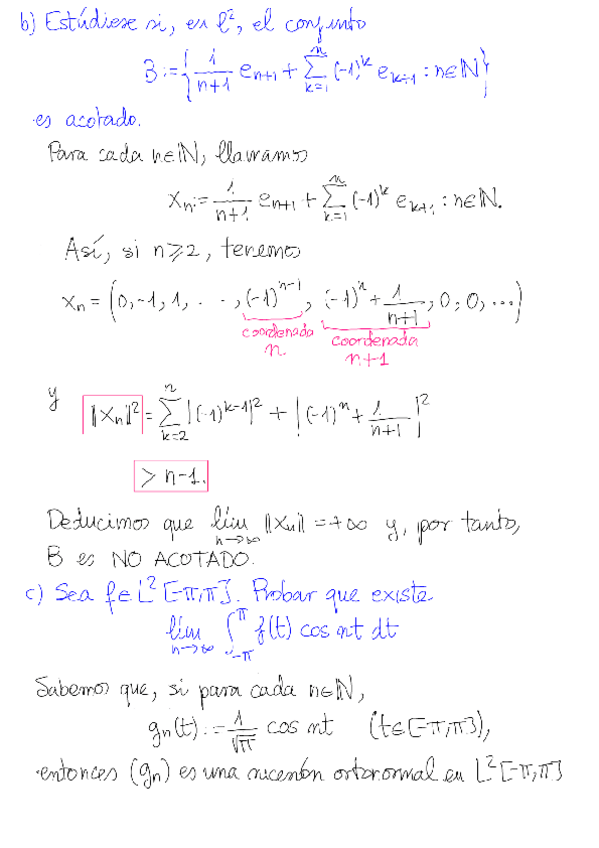 b) Estúdiese si, en l², el conjunto
B := { 1/(n+1) e_{n+1} + ∑_{k=1}^{n} (-1)^k e_{k+1} : n∈ℕ }
es acotado.
Para cada n∈ℕ, llamamos
x_n := 1/(n+1) e_{n+1} + ∑_{k=1}^{n} (-1)^k e_{k+1} : n∈ℕ.
Así, si n⩾2, tenemos
x_n = (0, -1, 1, ..., (-1)^{n-1}, (-1)^n + 1/(n+1), 0, 0, ...)
coordenada n. coordenada n+1
y ||x_n||² = ∑_{k=2}^{n} |(-1)^{k-1}|² + |(-1)^n + 1/(n+1)|²
> n-1.
Deducimos que lím_{n→∞} ||x_n|| = +∞ y, por tanto,
B es NO ACOTADO.
c) Sea f∈L²[-π,π]. Probar que existe
lím_{n→∞} ∫_{-π}^{π} f(t) cos nt dt
Sabemos que, si para cada n∈ℕ,
g_n(t) := 1/√π cos nt (t∈[-π,π]),
entonces (g_n) es una sucesión ortonormal en L²[-π,π]